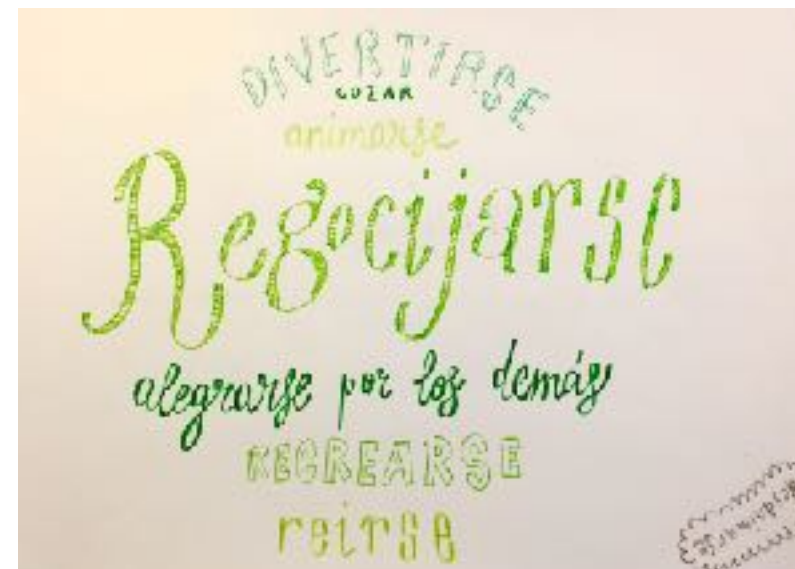 DIVERTIRSE
GOZAR
animarse
Regocijarse
alegrarse por los demás
RECREARSE
reirse